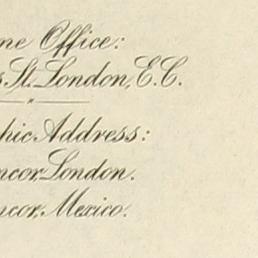 ne Office:
s St. London, E.C.
hic Address:
ncor, London.
ncor, Mexico.